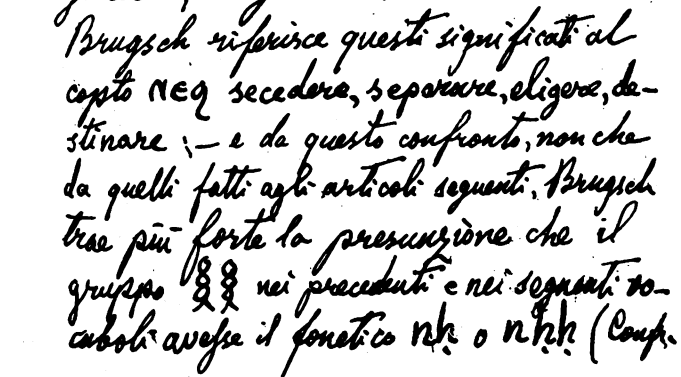 Brugsch riferisce questi significati al
copto ⲛⲉϩ secedere, separare, eligere, de-
stinare ;— e da questo confronto, non che
da quelli fatti agli articoli seguenti, Brugsch
trae più forte la presunzione che il
gruppo 𓎛𓎛 nei precedenti e nei seguenti vo-
caboli avesse il fonetico nḥ o nḥḥ (Confr.